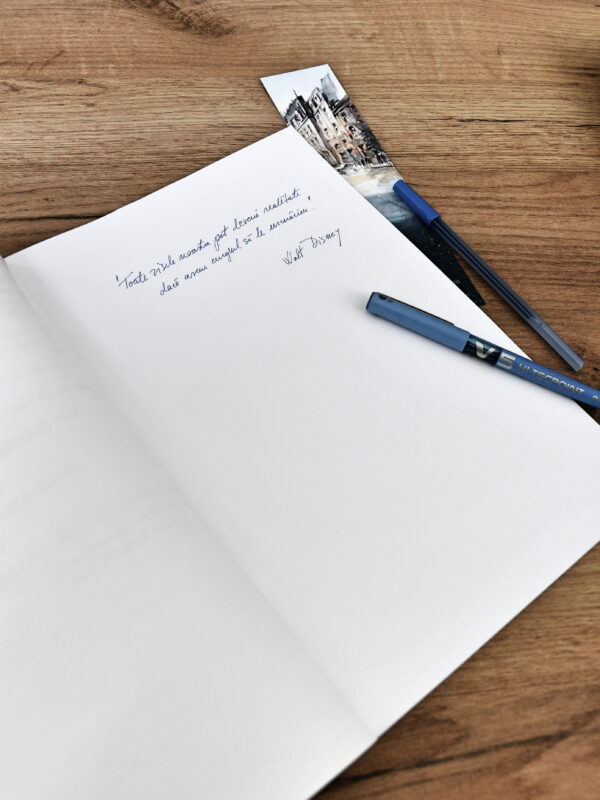 "Toate visele noastre pot deveni realitate
dacă avem curajul să le urmărim."
Walt Disney
V5
HI-TECPOINT